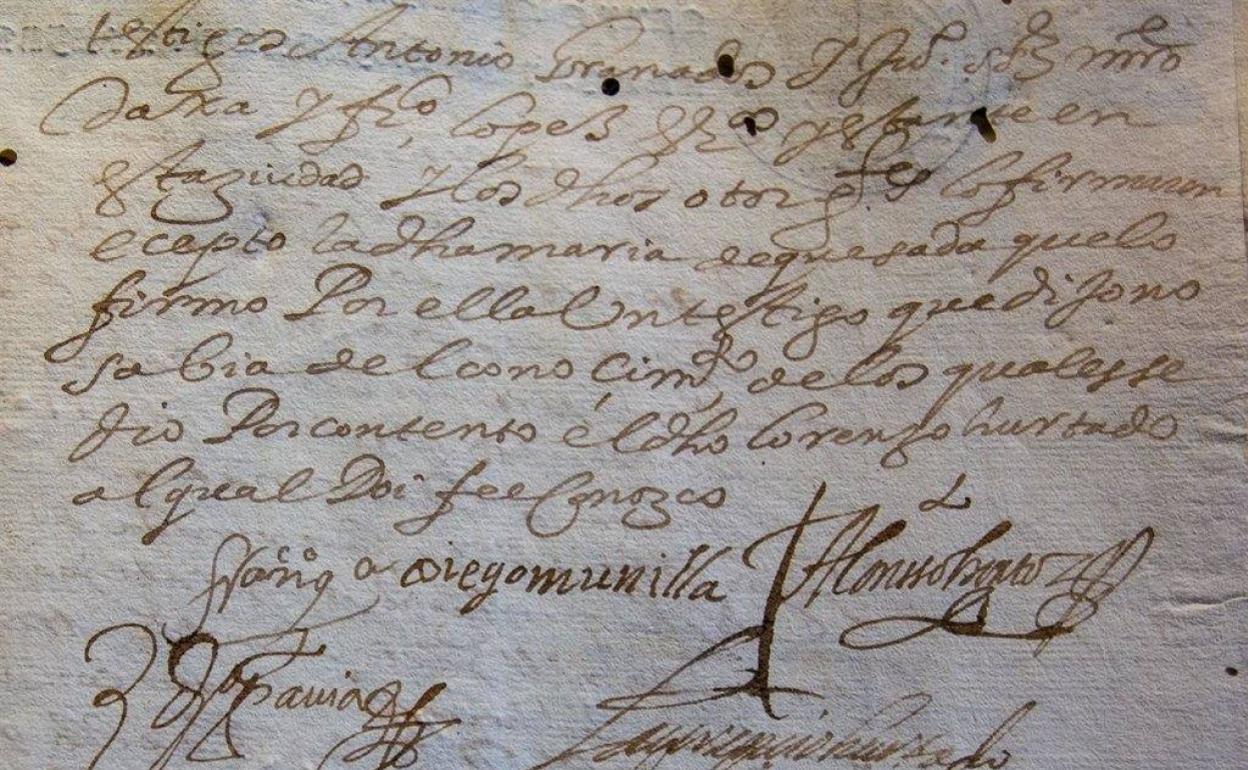 testigos Antonio Granados y Juº. mro
y frcº lopez y estante en
estaziudad y los dhos otorgtes lo firmaron
ecepto la dha maria de quesada que lo
firmo Por ella Un testigo que dijo no
sabia de el cono cimtº de los quales se
dio Por contento el dho lorenzo hurtado
al qual Doi fee Conozco
diego munilla Alonso
Pavia
hurtado